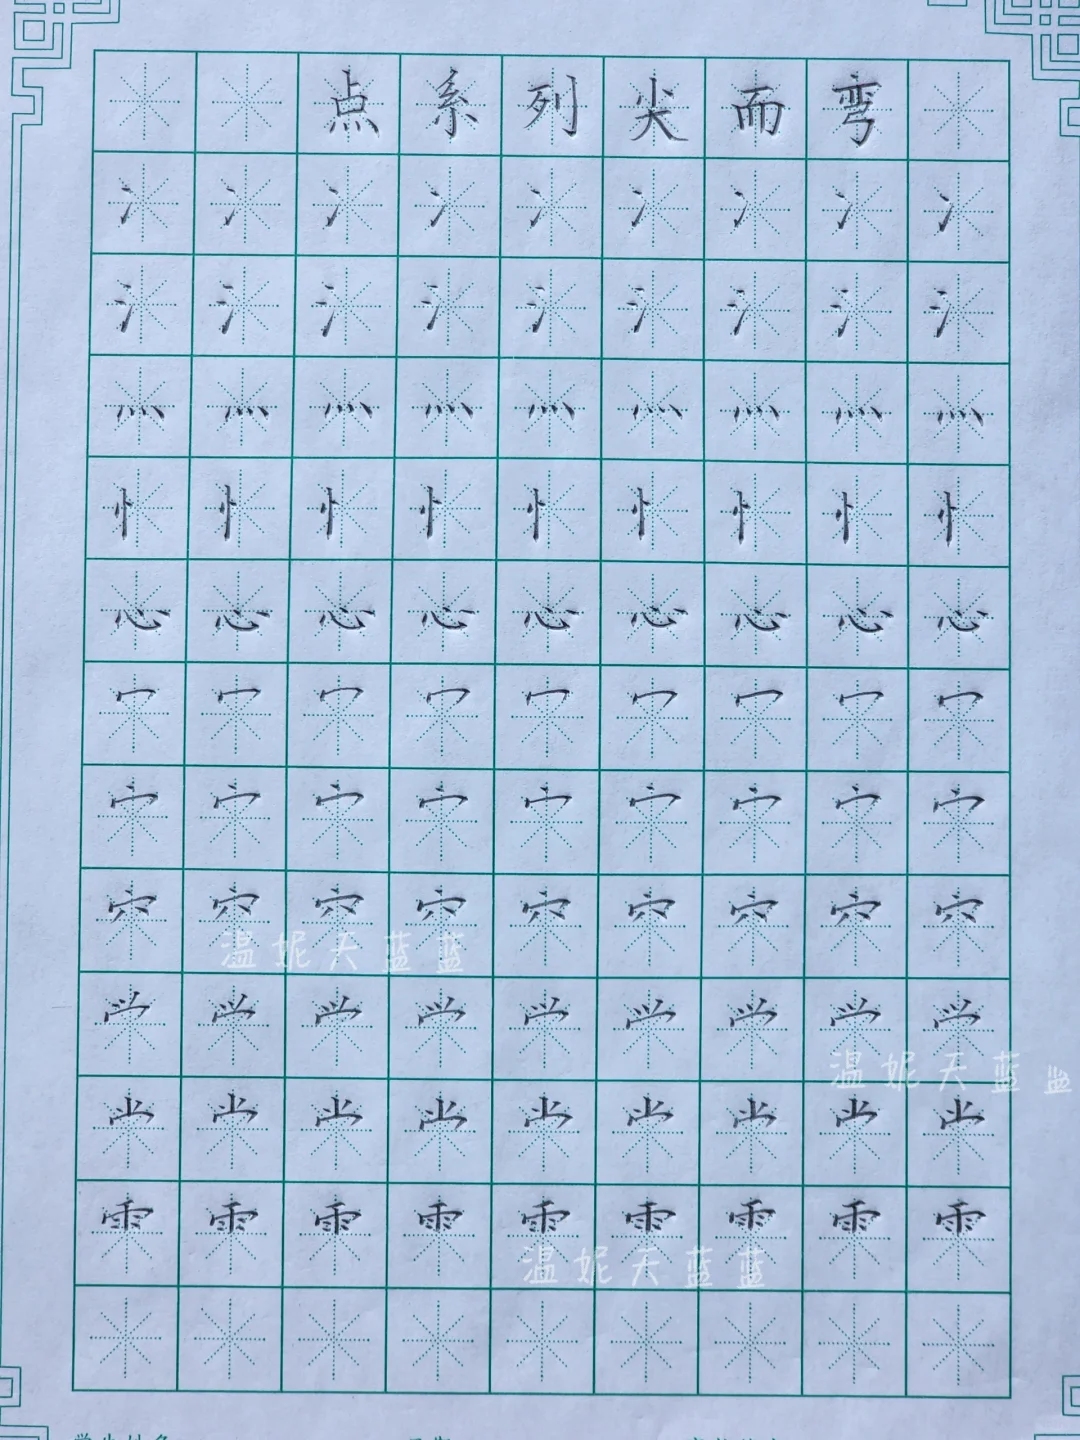 点系列尖而弯
冫冫冫冫冫冫冫冫冫
氵氵氵氵氵氵氵氵氵
灬灬灬灬灬灬灬灬灬
忄忄忄忄忄忄忄忄忄
心心心心心心心心心
冖冖冖冖冖冖冖冖冖
宀宀宀宀宀宀宀宀宀
穴穴穴穴穴穴穴穴穴
温妮天蓝蓝
𰃮𰃮𰃮𰃮𰃮𰃮𰃮𰃮𰃮
温妮天蓝
⺌⺌⺌⺌⺌⺌⺌⺌⺌
雨雨雨雨雨雨雨雨雨
温妮天蓝蓝